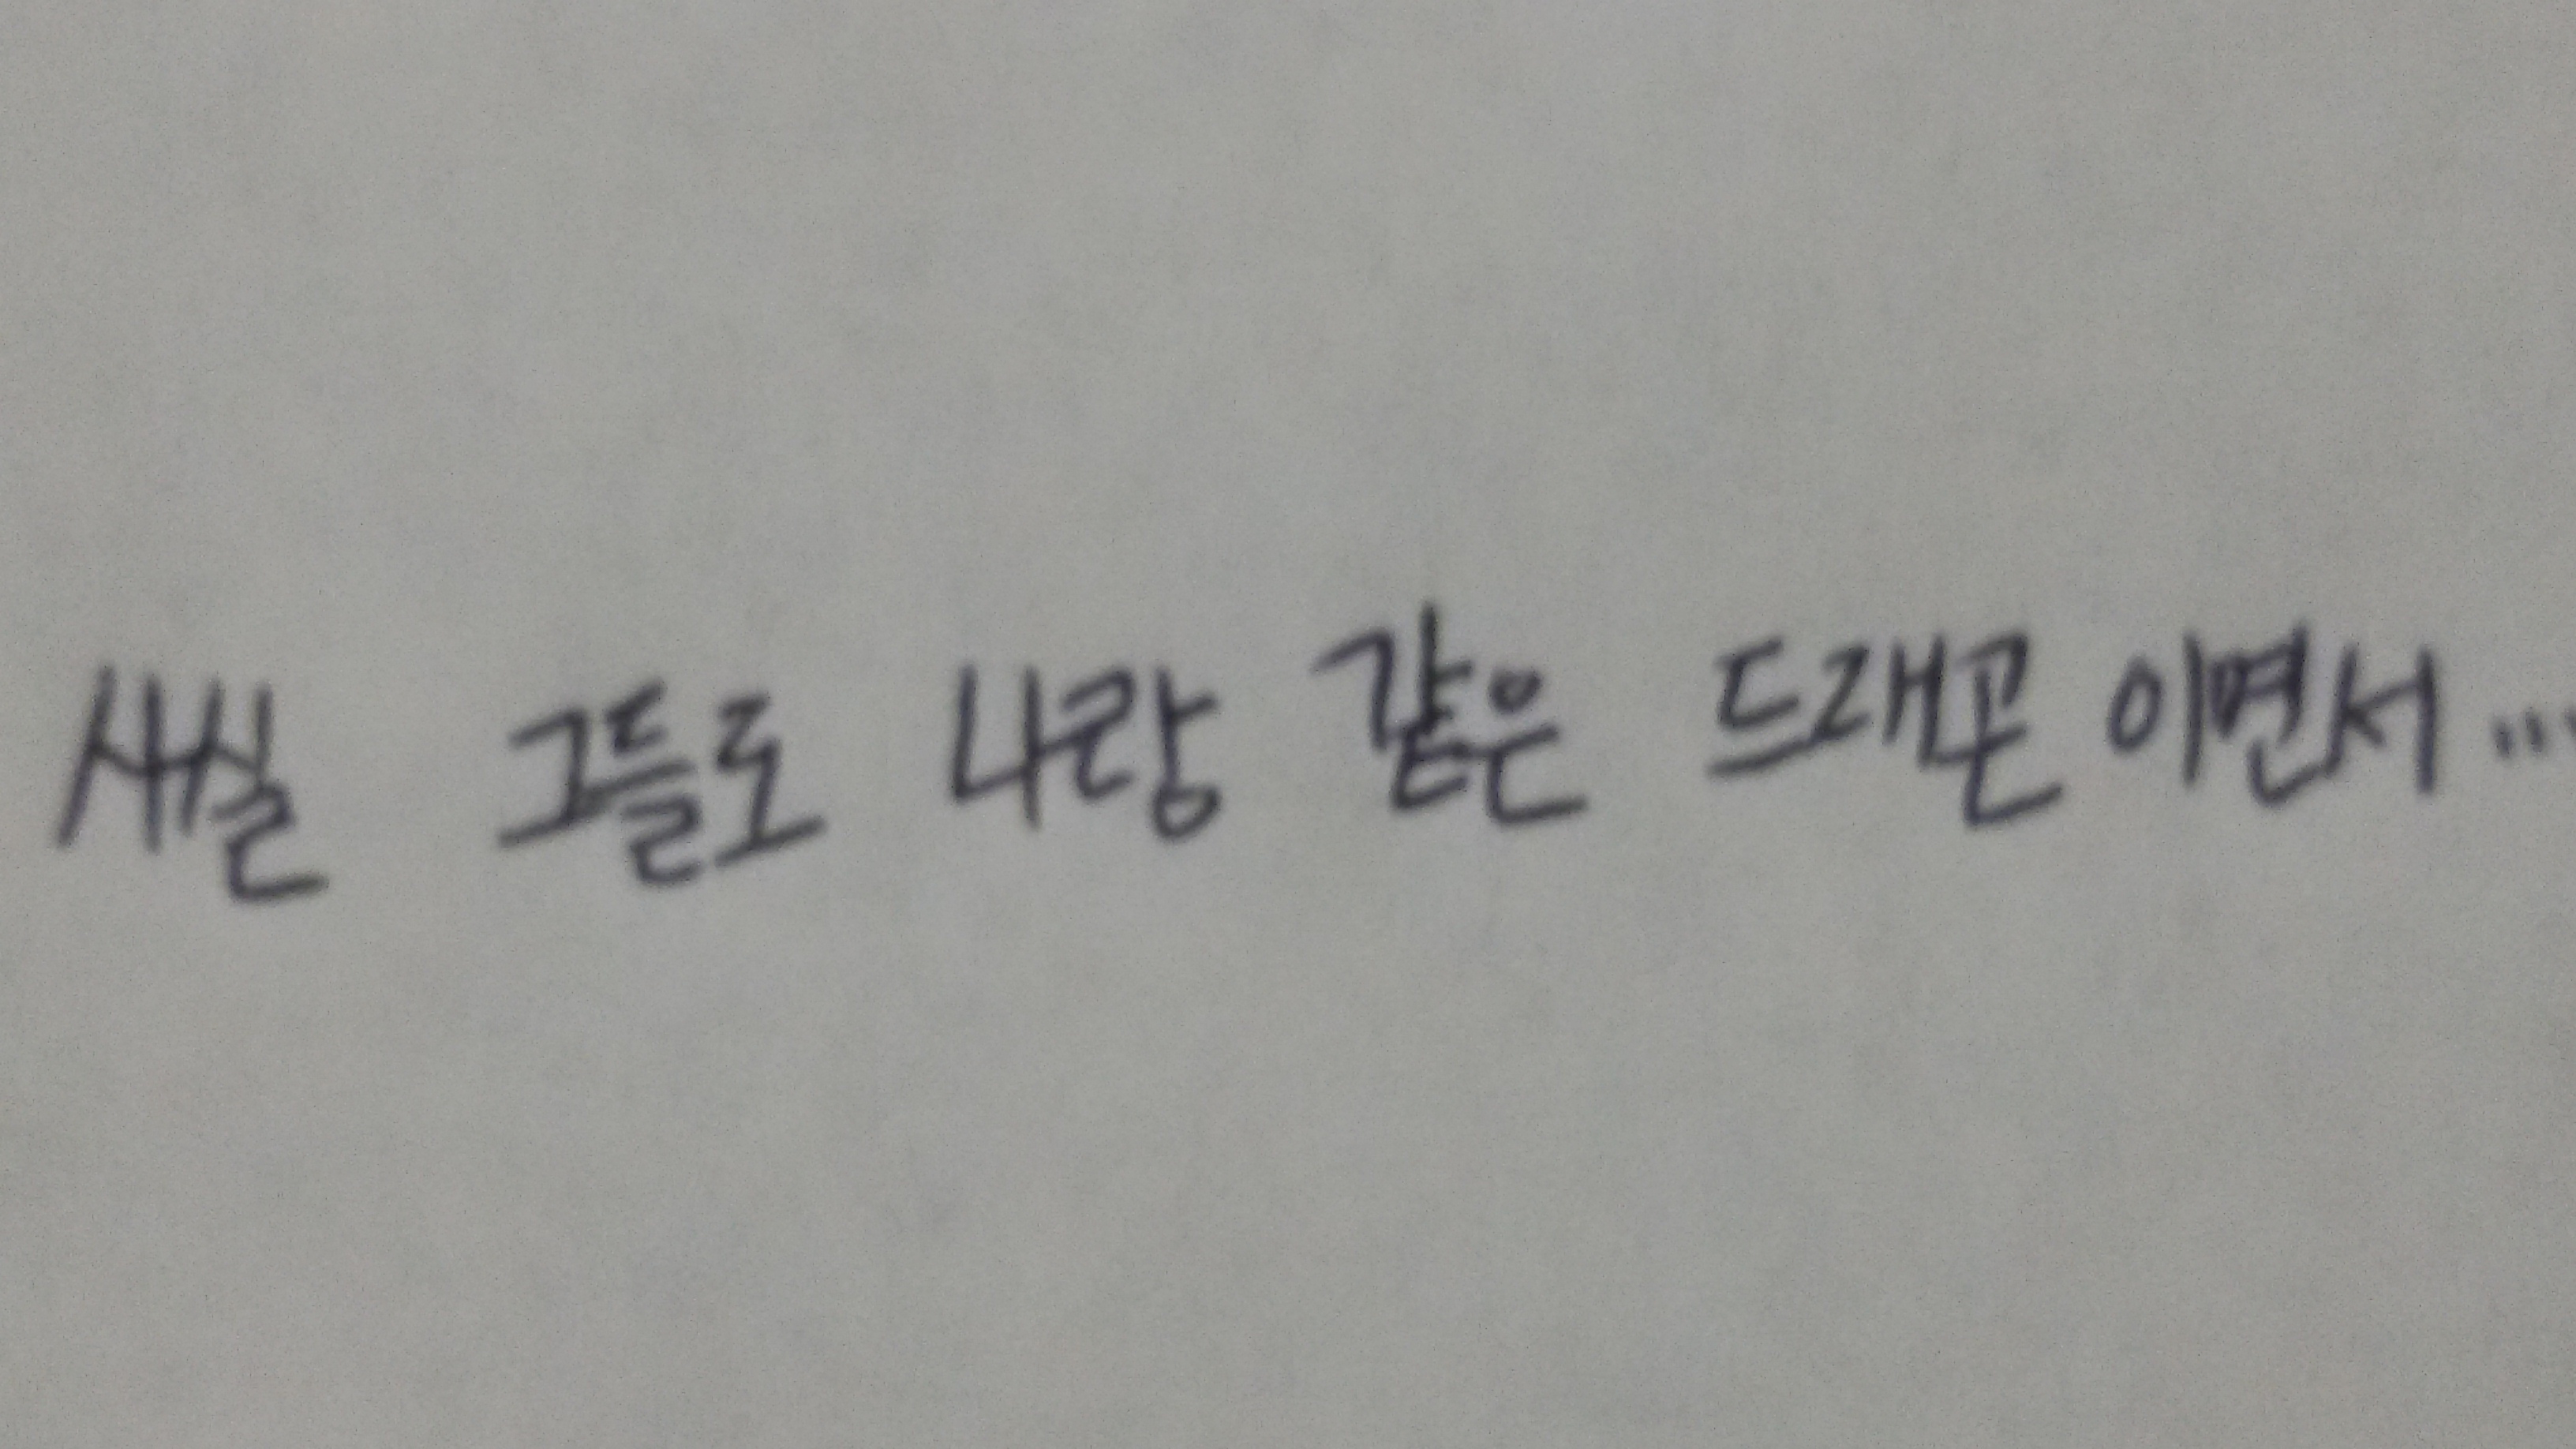 사실 그들도 나랑 같은 드래곤 이면서...